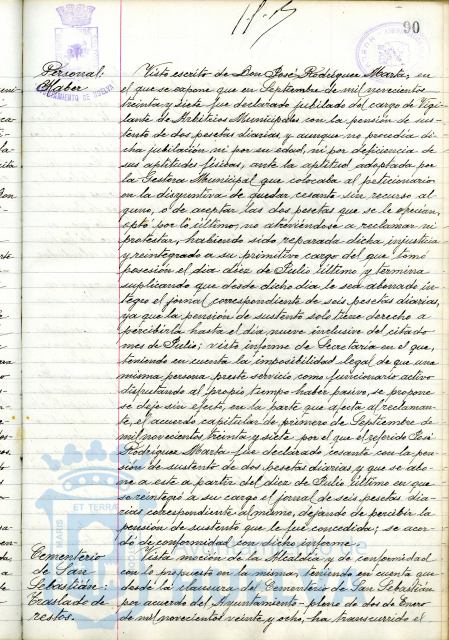 90
Personal:
Haber
AYUNTAMIENTO DE HUELVA
Visto escrito de Don José Rodríguez Marta, en
el que se expone que en Septiembre de mil novecientos
treinta y siete fue declarado jubilado del cargo de Vigi-
lante de Arbitrios Municipales con la pensión de sus-
tento de dos pesetas diarias y aunque no procedia di-
cha jubilación ni por su edad, ni por deficiencia de
sus aptitudes físicas, ante la aptitud adoptada por
la Gestora Municipal que colocaba al peticionario
en la disyuntiva de quedar cesante sin recurso al-
guno, o de aceptar las dos pesetas que se le ofrecian,
optó por lo último, no atreviéndose a reclamar ni
protestar, habiendo sido reparada dicha injusticia
y reintegrado a su primitivo cargo del que tomó
posesión el día diez de Julio último y termina
suplicando que desde dicho día le sea abonado ín-
tegro el jornal correspondiente de seis pesetas diarias,
ya que la pensión de sustento solo tiene derecho a
percibirla hasta el día nueve inclusive del citado
mes de Julio; visto informe de Secretaria en el que,
teniendo en cuenta la imposibilidad legal de que una
misma persona preste servicio como funcionario activo
disfrutando al propio tiempo haber pasivo, se propone
se deje sin efecto, en la parte que afecta al reclaman-
te, el acuerdo capitular de primero de Septiembre de
mil novecientos treinta y siete por el que el referido José
Rodríguez Marta fue declarado cesante con la pen-
sión de sustento de dos pesetas diarias y que se abo-
ne a este a partir del diez de Julio último en que
se reintegró a su cargo el jornal de seis pesetas dia-
rias correspondiente al mismo, dejando de percibir la
pensión de sustento que le fue concedida; se acor-
dó de conformidad con dicho informe.
Cementerio
de San
Sebastián:
Traslado de
restos.
Vista moción de la Alcaldía y de conformidad
con lo propuesto en la misma, teniendo en cuenta que
desde la clausura del Cementerio de San Sebastián
por acuerdo del Ayuntamiento-pleno de dos de Enero
de mil novecientos veinte y ocho, ha transcurrido el
ET TERRA